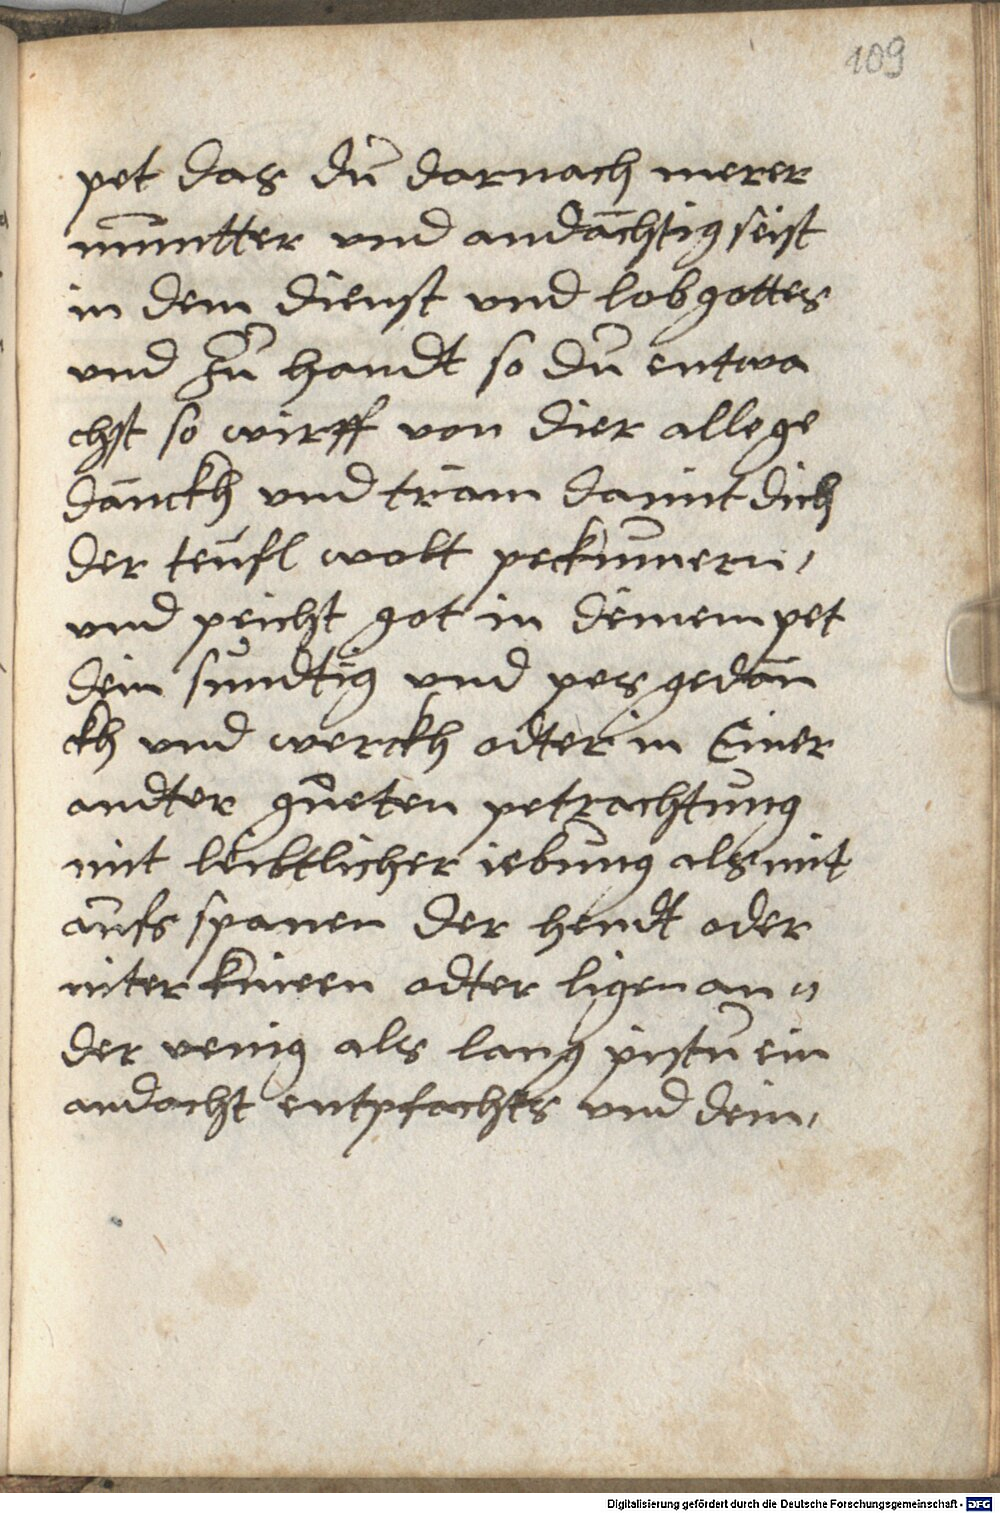 109
pet das du darnach merer
muntter vnd andächtig seist
in dem dienst vnd lob gottes
vnd zu handt so du entwa
chst so wirff von dier alle ge
dänckh vnd träm damit dich
der teufl wolt pekumern,
vnd peicht got in deinem pet
dein sündtig vnd pes gedan
ckh vnd werckh odter in Einer
andter gueten petrachtung
mit leibtlicher iebung als mit
aufs spanen der hendt oder
niter knieen odter ligen an
der venig als lang pistu ein
andacht entpfachsts vnd dein,
Digitalisierung gefördert durch die Deutsche Forschungsgemeinschaft - DFG